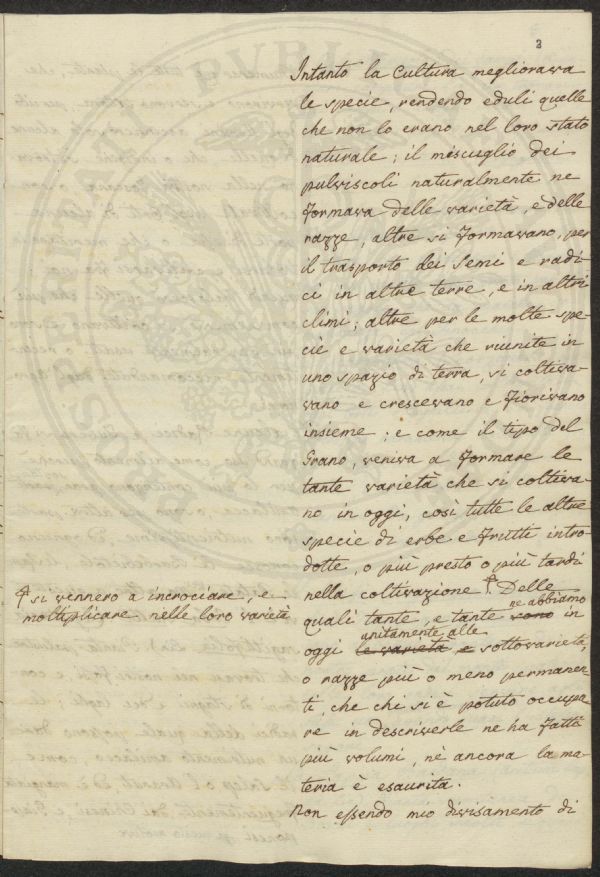 2
Intanto la Cultura megliorava
le specie, rendendo eduli quelle
che non lo erano nel loro stato
naturale; il miscuglio dei
pulviscoli naturalmente ne
formava delle varietà, e delle
razze, altre si formavano, per
il trasporto dei semi e radi-
ci in altre terre, e in altri
climi; altre per le molte spe-
cie e varietà che riunite in
uno spazio di terra, si coltiva-
vano e crescevano e fiorivano
insieme; e come il tipo del
Grano, veniva a formare le
tante varietà che si coltiva-
no in oggi, così tutte le altre
specie di erbe e frutti intro-
dotte, o più presto o più tardi
nella coltivazione ⁋. Delle
⁋ si vennero a incrociare, e
moltiplicare nelle loro varietà
quali tante, e tante sono ne abbiamo in
oggi le varietà e unitamente alle sottovarietà,
o razze più o meno permanen-
ti, che chi si è potuto occupa-
re in descriverle ne ha fatti
più volumi, nè ancora la ma-
teria è esaurita.
Non essendo mio divisamento di